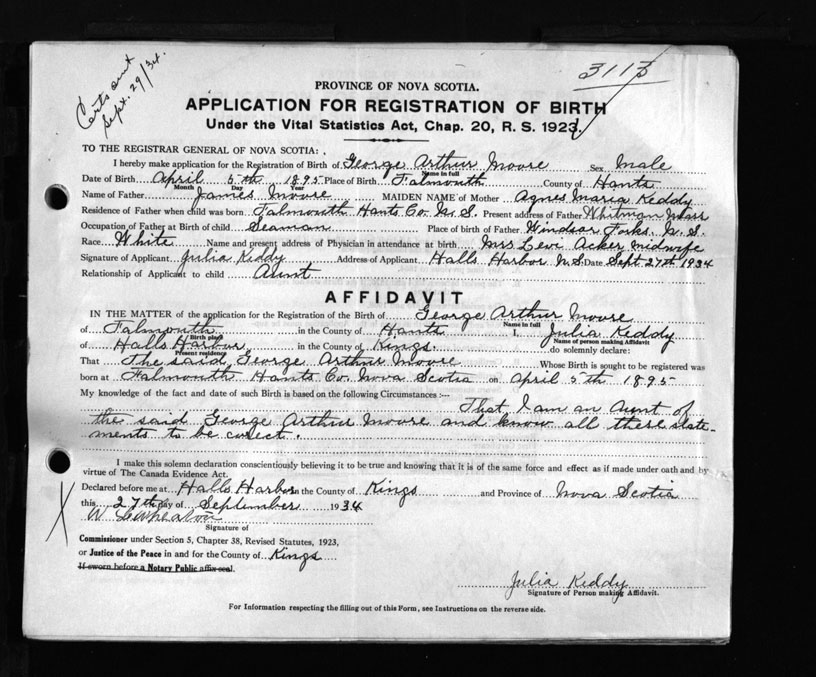 Certs sent.
Sept. 29/34.
3113
PROVINCE OF NOVA SCOTIA.
APPLICATION FOR REGISTRATION OF BIRTH
Under the Vital Statistics Act, Chap. 20, R. S. 1923.
TO THE REGISTRAR GENERAL OF NOVA SCOTIA:
I hereby make application for the Registration of Birth of George Arthur Moore Sex Male
Name in full
Date of Birth April 5th 1895 Place of Birth Falmouth County of Hants
Month Day Year
Name of Father James Moore MAIDEN NAME of Mother Agnes Maria Keddy
Residence of Father when child was born Falmouth Hants Co. N.S. Present address of Father Whitman Mass
Occupation of Father at Birth of child Seaman Place of birth of Father Windsor Forks. N.S.
Race White Name and present address of Physician in attendance at birth Mrs Levi Acker midwife
Signature of Applicant Julia Keddy Address of Applicant Halls Harbor N.S. Date Sept 27th 1934
Relationship of Applicant to child Aunt
AFFIDAVIT
IN THE MATTER of the application for the Registration of the Birth of George Arthur Moore
Name in full
of Falmouth in the County of Hants I, Julia Keddy
Birth place Name of person making Affidavit
of Halls Harbor in the County of Kings. do solemnly declare:
Present residence
That The said George Arthur Moore Whose Birth is sought to be registered was
born at Falmouth Hants Co. Nova Scotia on April 5th 1895
My knowledge of the fact and date of such Birth is based on the following Circumstances :—
That I am an Aunt of
the said George Arthur Moore and know all these state-
ments to be correct.
I make this solemn declaration conscientiously believing it to be true and knowing that it is of the same force and effect as if made under oath and by
virtue of The Canada Evidence Act.
Declared before me at Halls Harbor in the County of Kings and Province of Nova Scotia
this 27th day of September 1934
Signature of
Commissioner under Section 5, Chapter 38, Revised Statutes, 1923,
or Justice of the Peace in and for the County of Kings
If sworn before a Notary Public affix seal.
Julia Keddy
Signature of Person making Affidavit.
For Information respecting the filling out of this Form, see Instructions on the reverse side.